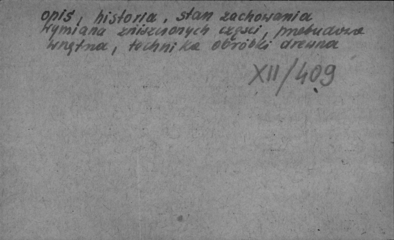 opis, historia, stan zachowania
wymiana zniszczonych części, przebudowa
wnętrza, technika obróbki drewna
XII/409